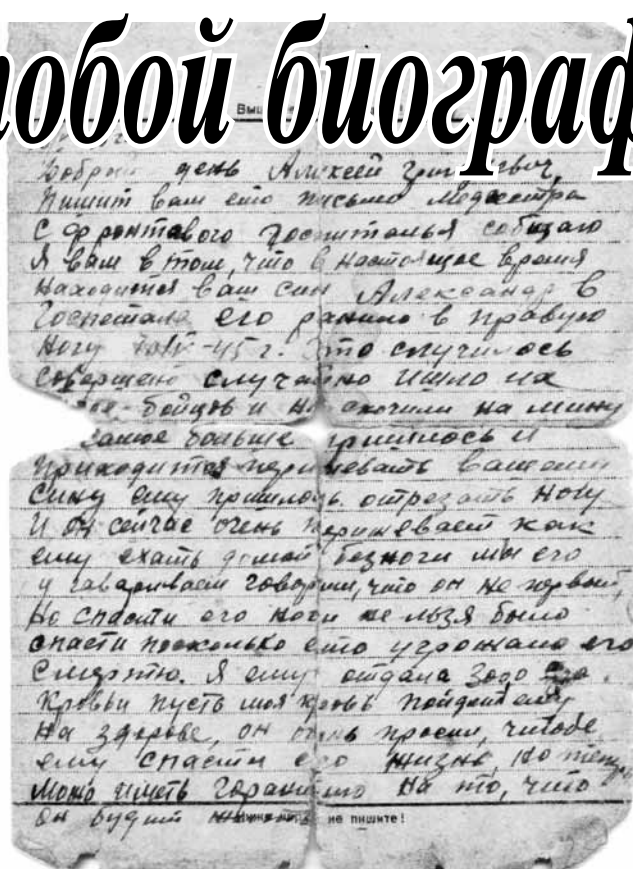 обой биограф
Добрый день Алексей
Пишит вам ето письмо Медсестра
с фронтавого госпиталья собщаю
Я вам в том, что в настоящее время
Находится ваш син Александр в
Госпетале его ранило в правую
Ногу 45 г. Это случилось
совершено случайно Ишло их
бойцов и на мину
больше пришлось и
приходится
сину ему пришлось отрезать ногу
И он сейчас очень перижевает как
ему ехать домой безноги мы его
угавариваем говорим, что он не первый,
Но спасти его ноги не льзя было
спасти поскольку ето угрожало его
Смертю. Я ему отдала
Кровьи пусть моя кровь пойдит ему
На здорове, он очень просил, чтобе
ему спасти его жизнь, но
Можо иметь гаранитю На то, что
Он будит
не пишите!